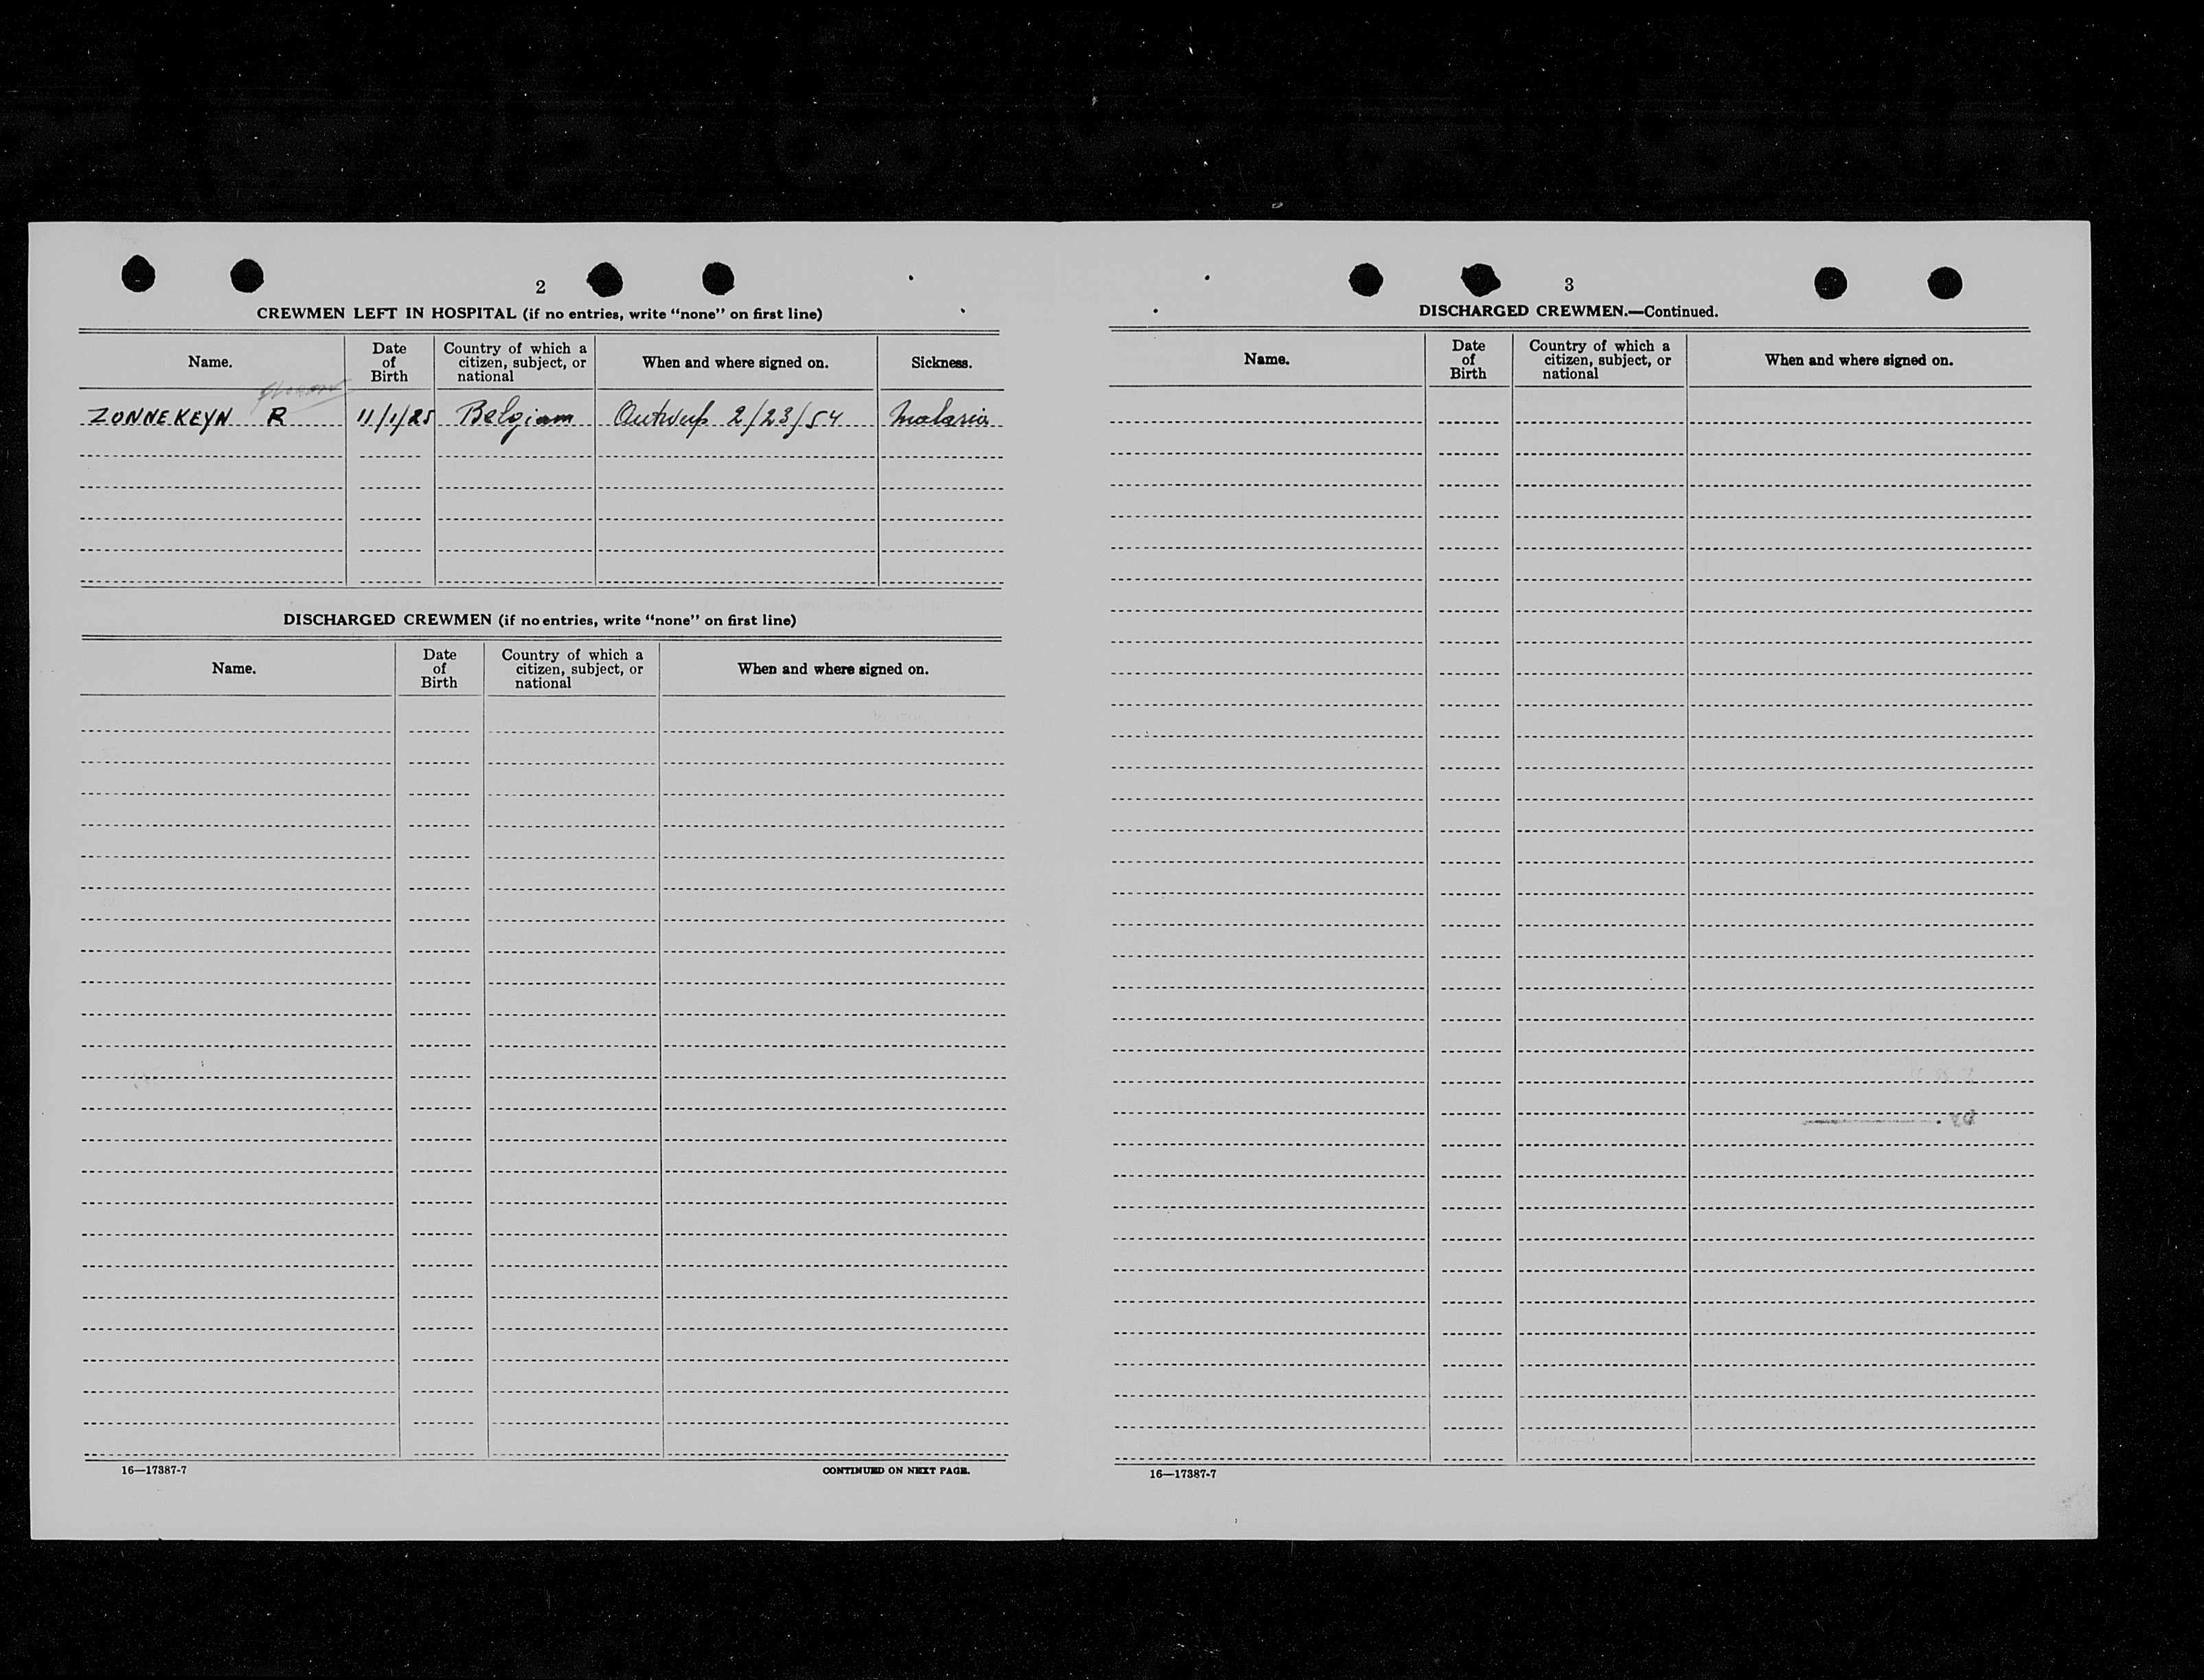 2
CREWMEN LEFT IN HOSPITAL (if no entries, write "none" on first line)
Name. Date of Birth Country of which a citizen, subject, or national When and where signed on. Sickness.
ZONNEKEYN R 11/1/25 Belgian Antwerp 2/23/54 Malaria
DISCHARGED CREWMEN (if no entries, write "none" on first line)
Name. Date of Birth Country of which a citizen, subject, or national When and where signed on.
16—17387-7 CONTINUED ON NEXT PAGE.
3
DISCHARGED CREWMEN.—Continued.
Name. Date of Birth Country of which a citizen, subject, or national When and where signed on.
16—17387-7